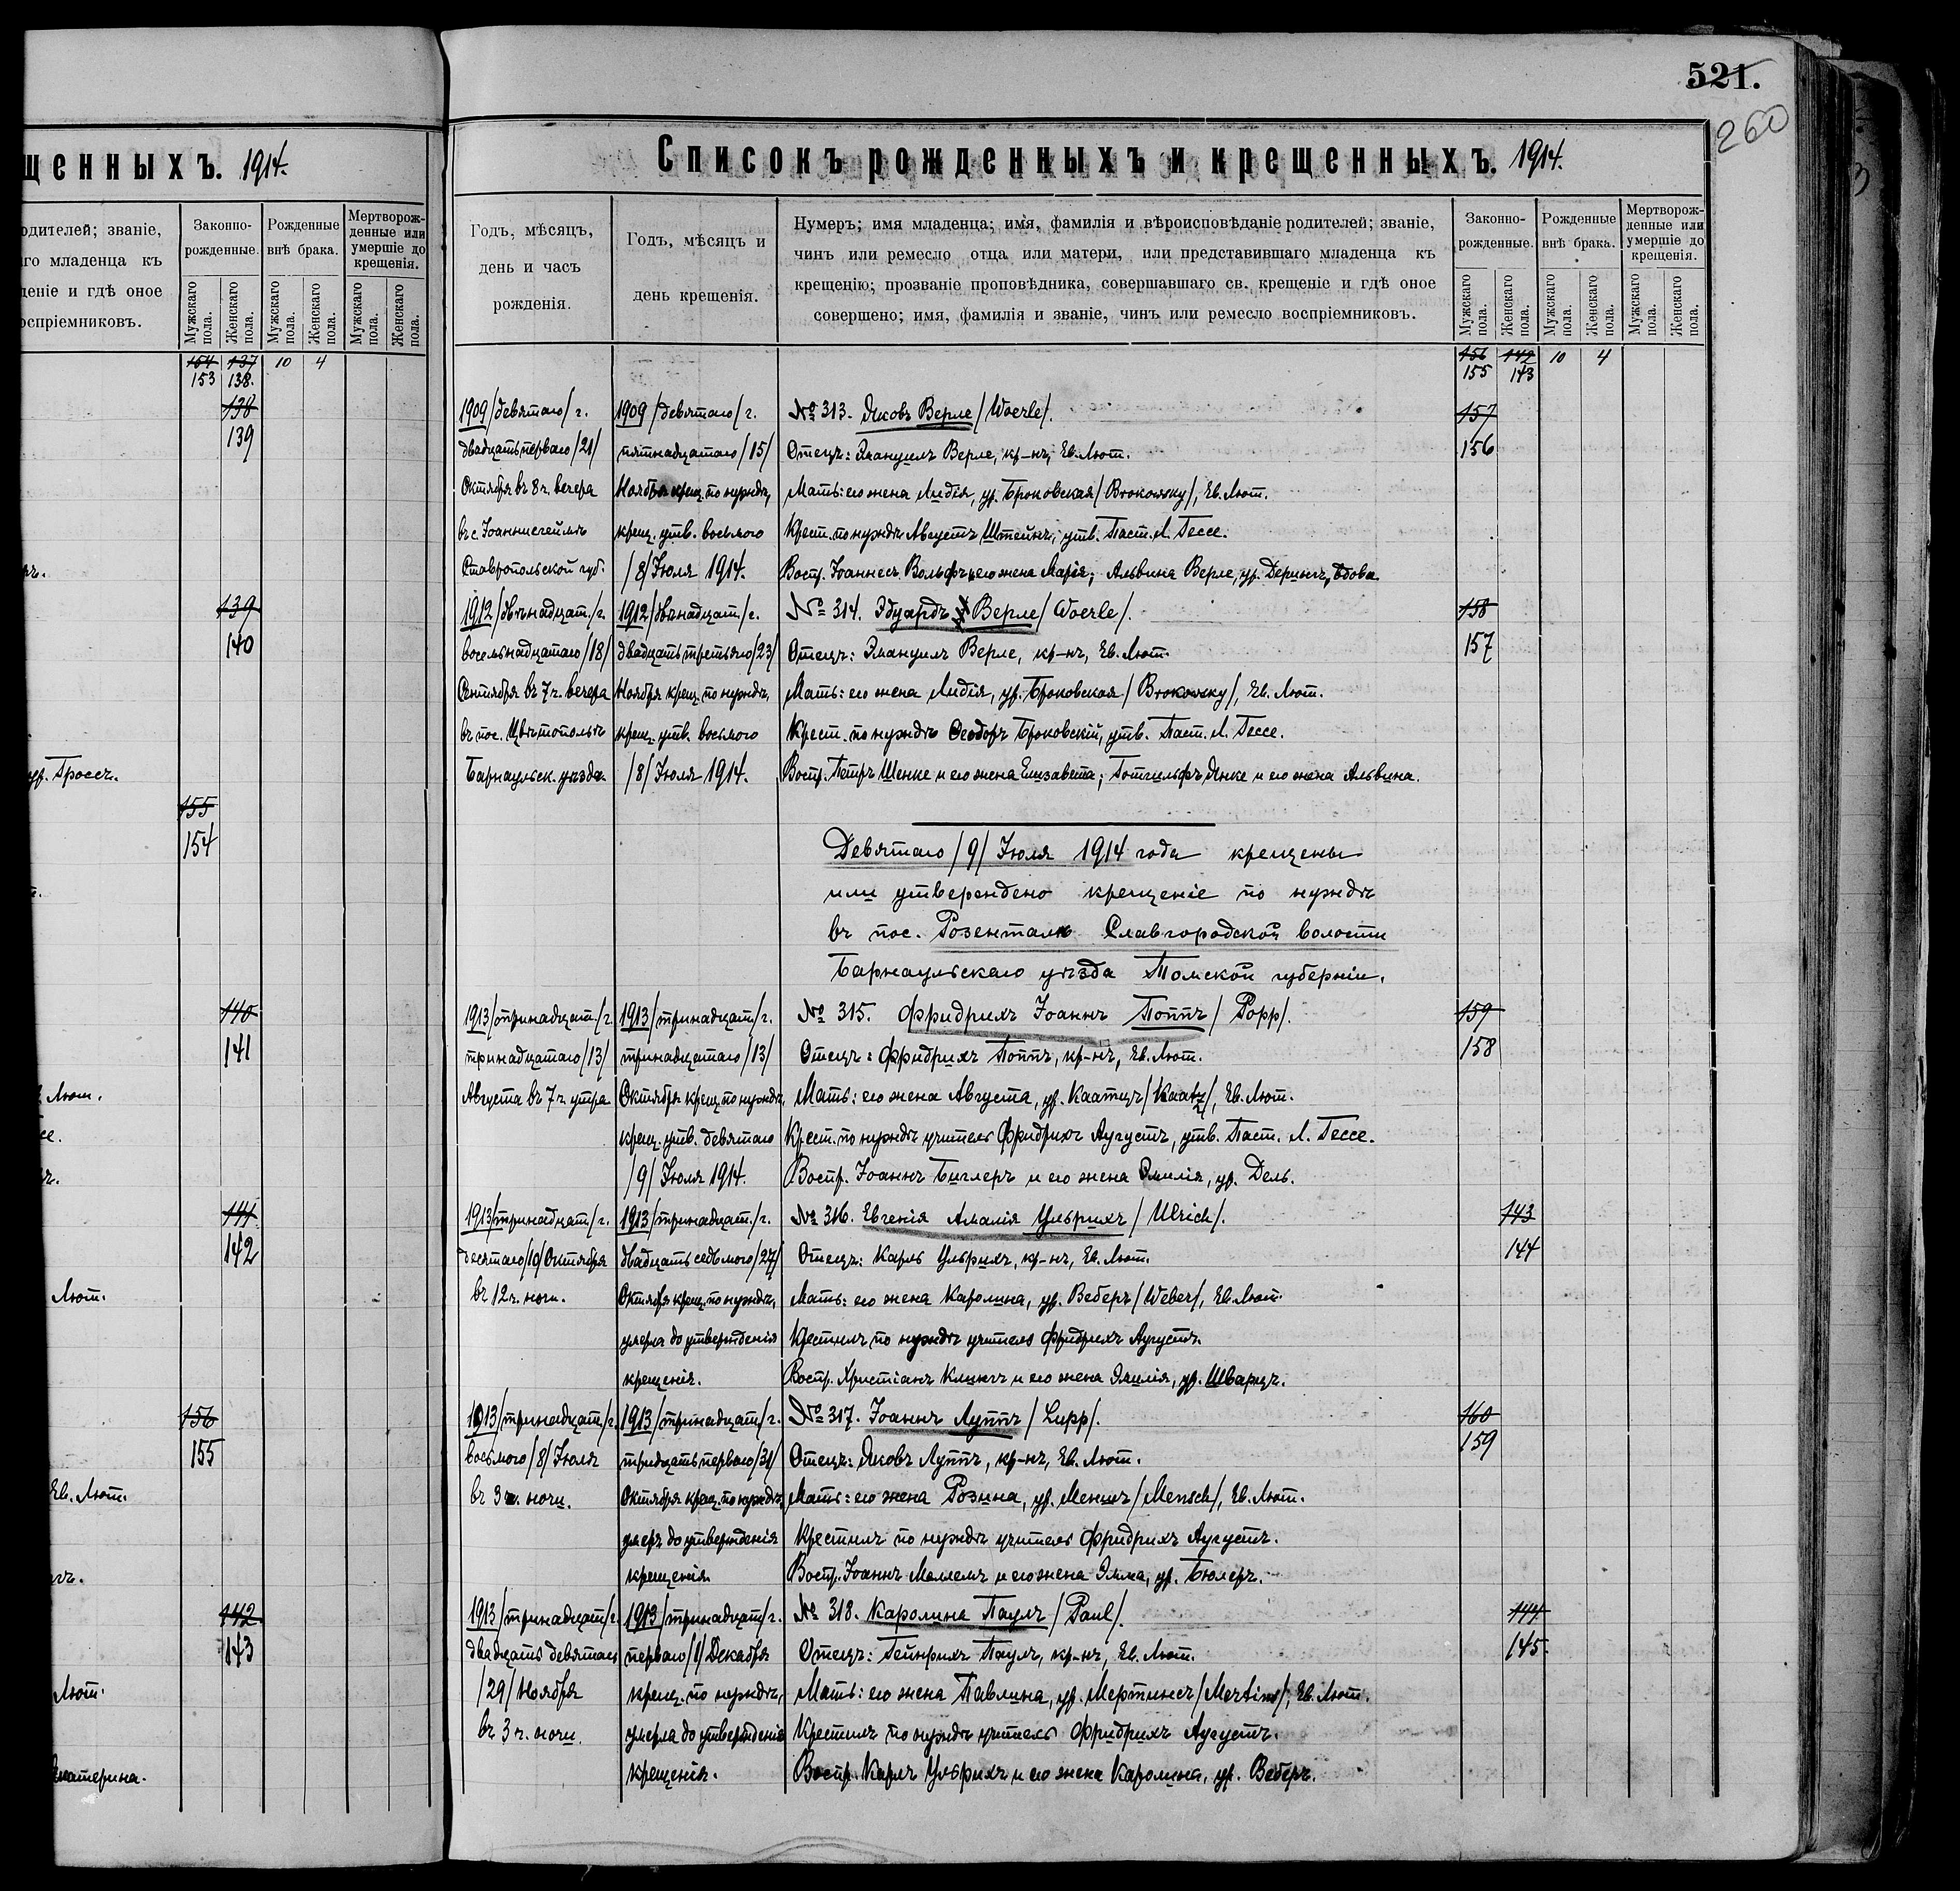 щенныхъ. 1914.
одителей; званіе,
го младенца къ
деніе и гдѣ оное
оспріемниковъ.
Законно-
рожденные.
Рожденные
внѣ брака.
Мертворож-
денные или
умершіе до
крещенія.
Мужскаго пола.
Женскаго пола.
Мужскаго пола.
Женскаго пола.
Мужскаго пола.
Женскаго пола.
154 137 10 4
153 138.
138
139
139
140
ур. Гроссъ.
155
154
140
141
Лют.
141
142
Лют.
156
155
Ев. Лют.
142
143
Лют.
Екатерина.
521.
260
Списокъ рожденныхъ и крещенныхъ. 1914.
Годъ, мѣсяцъ,
день и часъ
рожденія.
Годъ, мѣсяцъ и
день крещенія.
Нумеръ; имя младенца; имя, фамилія и вѣроисповѣданіе родителей; званіе,
чинъ или ремесло отца или матери, или представившаго младенца къ
крещенію; прозваніе проповѣдника, совершавшаго св. крещеніе и гдѣ оное
совершено; имя, фамилія и званіе, чинъ или ремесло воспріемниковъ.
Законно-
рожденные.
Рожденные
внѣ брака.
Мертворож-
денные или
умершіе до
крещенія.
Мужскаго пола.
Женскаго пола.
Мужскаго пола.
Женскаго пола.
Мужскаго пола.
Женскаго пола.
156 142 10 4
155 143
1909/девятаго/г. 1909/девятаго/г. № 313. Яковъ Верле/Woerle/. 157
двадцать перваго/21/ пятнадцатаго/15/ Отецъ: Эмануилъ Верле, кр-нъ, Ев. Лют. 156
Октября въ 8 ч. вечера Ноября крещ. по нуждѣ, Мать: его жена Лидія, ур. Броковская/Brokowsky/, Ев. Лют.
въ с. Іоаннисгеймъ крещ. утв. восьмого Крест. по нуждѣ Августъ Штейнъ, утв. Паст. Л. Гессе.
Ставропольской губ. /8/ Іюля 1914. Воспр. Іоаннесъ Вольфъ и его жена Марія; Альвина Верле, ур. Дерингъ, вдова.
1912/двѣнадцат./г. 1912/двѣнадцат./г. № 314. Эдуардъ Верле/Woerle/. 158
восемьнадцатаго/18/ двадцать третьяго/23/ Отецъ: Эмануилъ Верле, кр-нъ, Ев. Лют. 157
Сентября въ 7 ч. вечера Ноября крещ. по нуждѣ, Мать: его жена Лидія, ур. Броковская/Brokowsky/, Ев. Лют.
въ пос. Цвѣтополь крещ. утв. восьмого Крест. по нуждѣ Ѳеодоръ Броковскій, утв. Паст. Л. Гессе.
Барнаульск. уѣзда. /8/ Іюля 1914. Воспр. Петръ Шенке и его жена Елизавета; Готгильфъ Янке и его жена Альвина.
Девятаго/9/ Іюля 1914 года крещены
или утверждено крещеніе по нуждѣ
въ пос. Розенталь Славгородской волости
Барнаульскаго уѣзда Томской губерніи.
1913/тринадцат./г. 1913/тринадцат./г. № 315. Фридрихъ Іоаннъ Поппъ/Popp/. 159
тринадцатаго/13/ тринадцатаго/13/ Отецъ: Фридрихъ Поппъ, кр-нъ, Ев. Лют. 158
Августа въ 7 ч. утра Октября крещ. по нуждѣ, Мать: его жена Августа, ур. Каатцъ/Kaatz/, Ев. Лют.
крещ. утв. девятаго Крест. по нуждѣ учитель Фридрихъ Аугустъ, утв. Паст. Л. Гессе.
/9/ Іюля 1914. Воспр. Іоаннъ Биглеръ и его жена Эмилія, ур. Дель.
1913/тринадцат./г. 1913/тринадцат./г. № 316. Евгенія Амалія Ульрихъ/Ulrich/. 143
десятаго/10/Октября двадцать седьмого/27/ Отецъ: Карлъ Ульрихъ, кр-нъ, Ев. Лют. 144
въ 12 ч. ночи. Октября крещ. по нуждѣ, Мать: его жена Каролина, ур. Веберъ/Weber/, Ев. Лют.
умерла до утвержденія Крестилъ по нуждѣ учитель Фридрихъ Аугустъ.
крещенія. Воспр. Христіанъ Клингъ и его жена Эмилія, ур. Шварцъ.
1913/тринадцат./г. 1913/тринадцат./г. № 317. Іоаннъ Луппъ/Lupp/. 160
восьмого/8/Іюля тридцать перваго/31/ Отецъ: Яковъ Луппъ, кр-нъ, Ев. Лют. 159
въ 3 ч. ночи. Октября крещ. по нуждѣ, Мать: его жена Розина, ур. Меншъ/Mensch/, Ев. Лют.
умеръ до утвержденія Крестилъ по нуждѣ учитель Фридрихъ Аугустъ.
крещенія. Воспр. Іоаннъ Маммель и его жена Эмма, ур. Бюлеръ.
1913/тринадцат/г. 1913/тринадцат/г. № 318. Каролина Паулъ/Paul/. 144
двадцать девятаго перваго/1/Декабря Отецъ: Гейнрихъ Паулъ, кр-нъ, Ев. Лют. 145
/29/Ноября крещ. по нуждѣ, Мать: его жена Павлина, ур. Мертинсъ/Mertins/, Ев. Лют.
въ 3 ч. ночи. умерла до утвержденія Крестилъ по нуждѣ учитель Фридрихъ Аугустъ.
крещенія. Воспр. Карлъ Ульрихъ и его жена Каролина, ур. Веберъ.